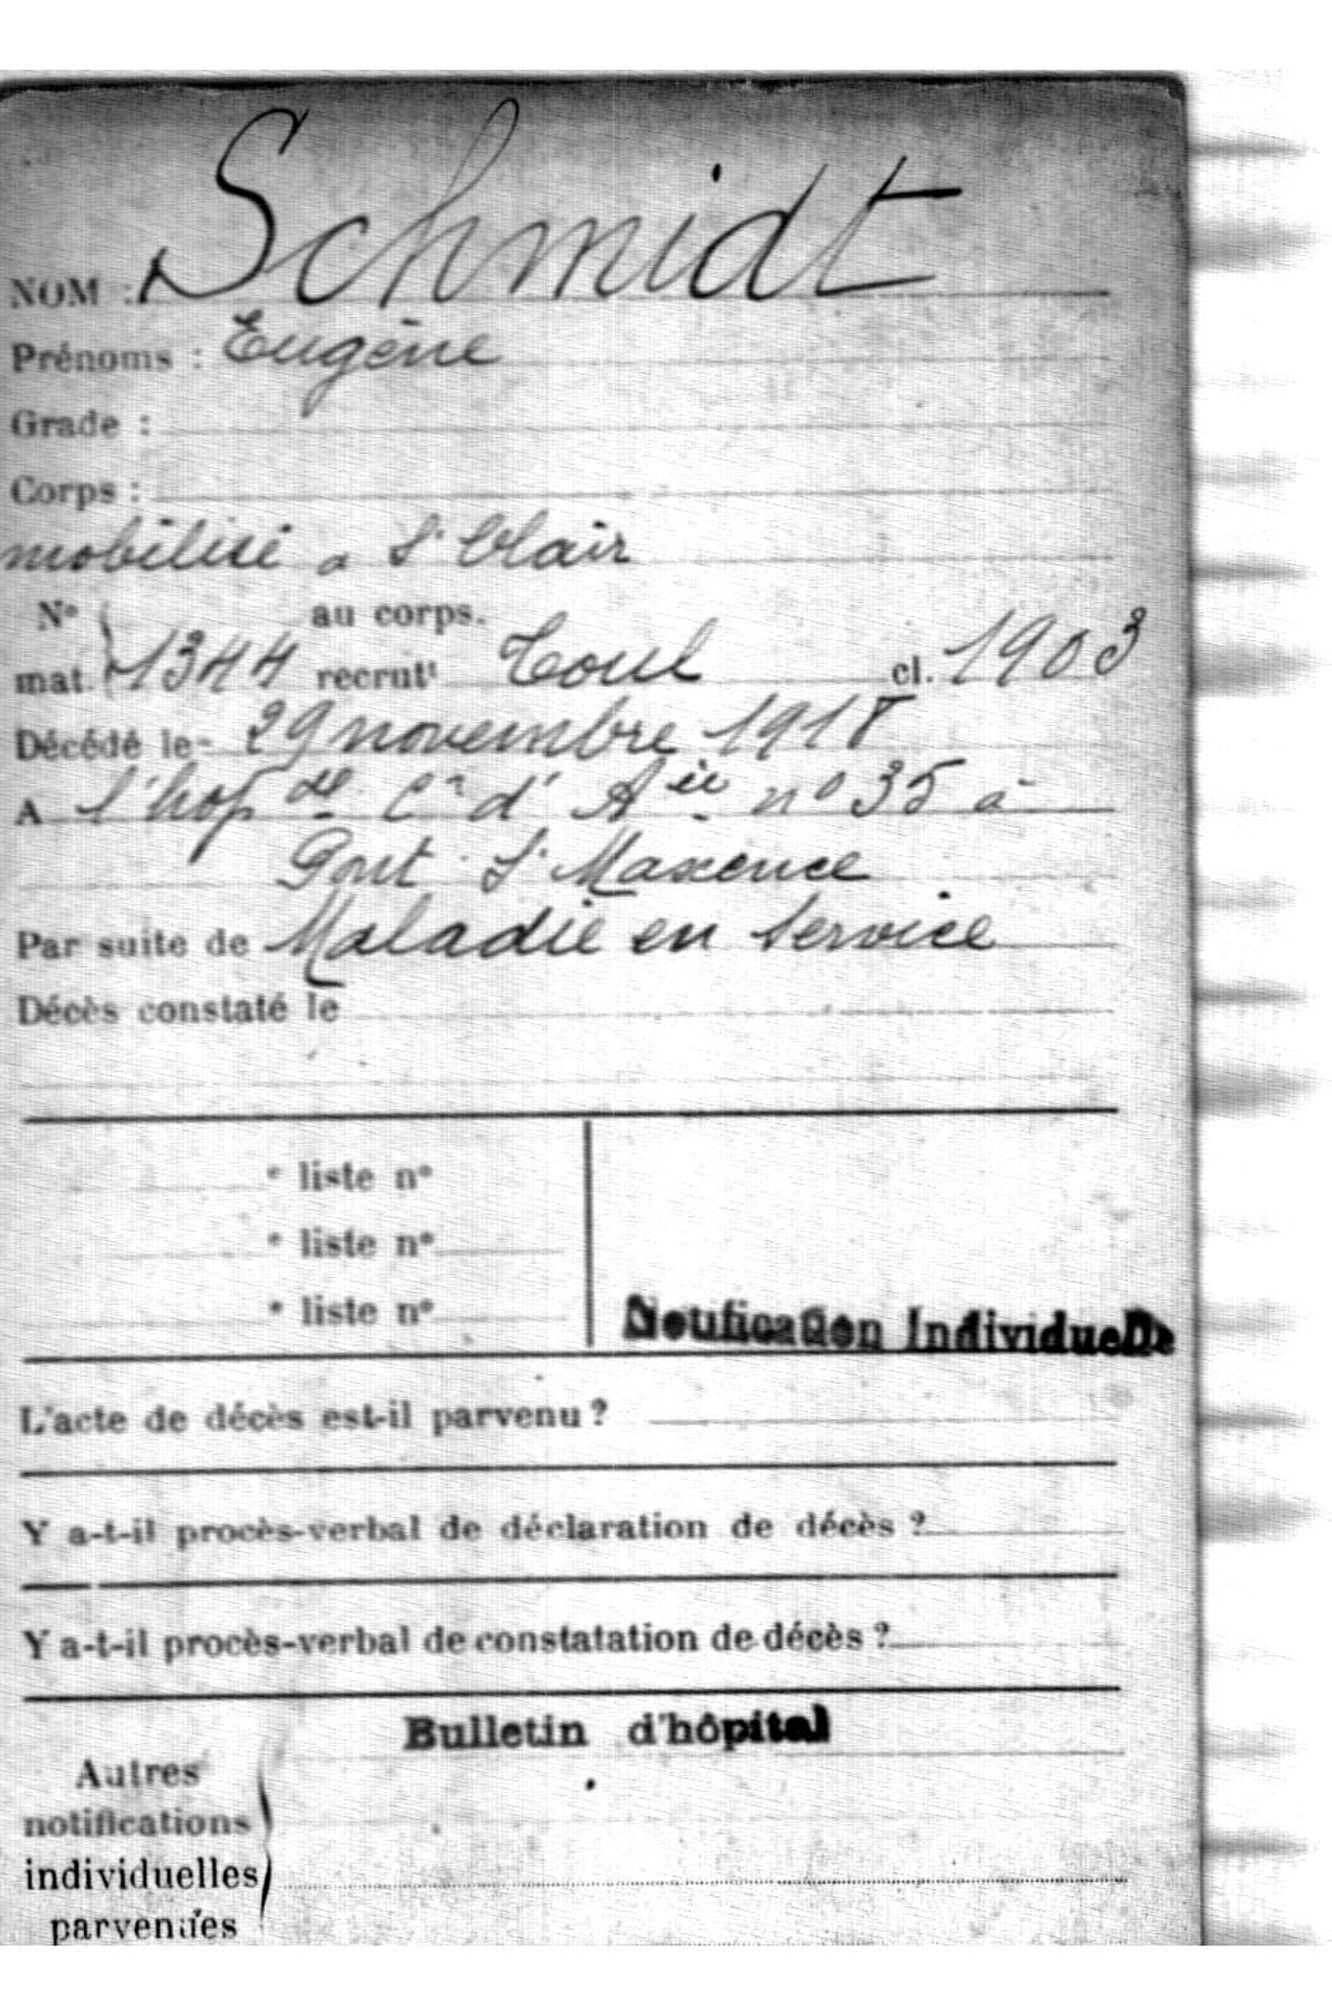 NOM : Schmidt
Prénoms : Eugène
Grade :
Corps :
mobilisé a St Clair
N° au corps.
mat. 1344 recrutt Toul cl. 1903
Décédé le 29 novembre 1918
A l'hop al C n d' A ie n° 35 à
Pont St Maxence
Par suite de Maladie en Service
Décès constaté le
* liste n°
* liste n°
* liste n°
Notification Individuelle
L'acte de décès est-il parvenu ?
Y a-t-il procès-verbal de déclaration de décès ?
Y a-t-il procès-verbal de constatation de décès ?
Bulletin d'hôpital
Autres
notifications
individuelles
parvenues